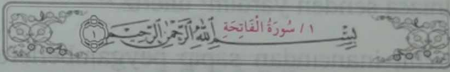 ١ / سُورَةُ الْفَاتِحَةِ
بِسْمِ اللَّهِ الرَّحْمَٰنِ الرَّحِيمِ ١